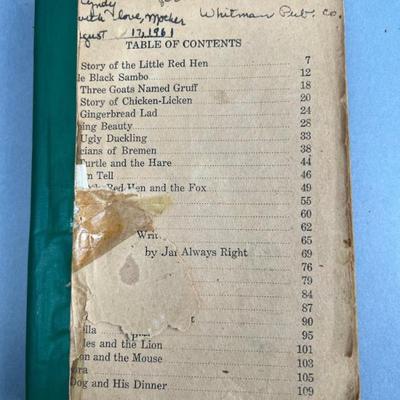 Cyndy
with love, Mother Whitman Pub. Co.
August 17, 1961
TABLE OF CONTENTS
Story of the Little Red Hen 7
le Black Sambo 12
Three Goats Named Gruff 18
Story of Chicken-Licken 20
Gingerbread Lad 24
ping Beauty 28
Ugly Duckling 33
icians of Bremen 38
Turtle and the Hare 44
m Tell 46
Red Hen and the Fox 49
55
60
Writ 65
by Jan Always Right 69
76
79
84
87
90
ella 95
les and the Lion 101
on and the Mouse 103
ora 105
Dog and His Dinner 109